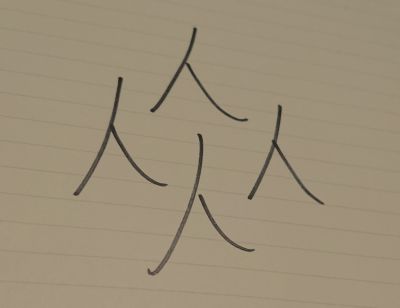 人
人 人
人